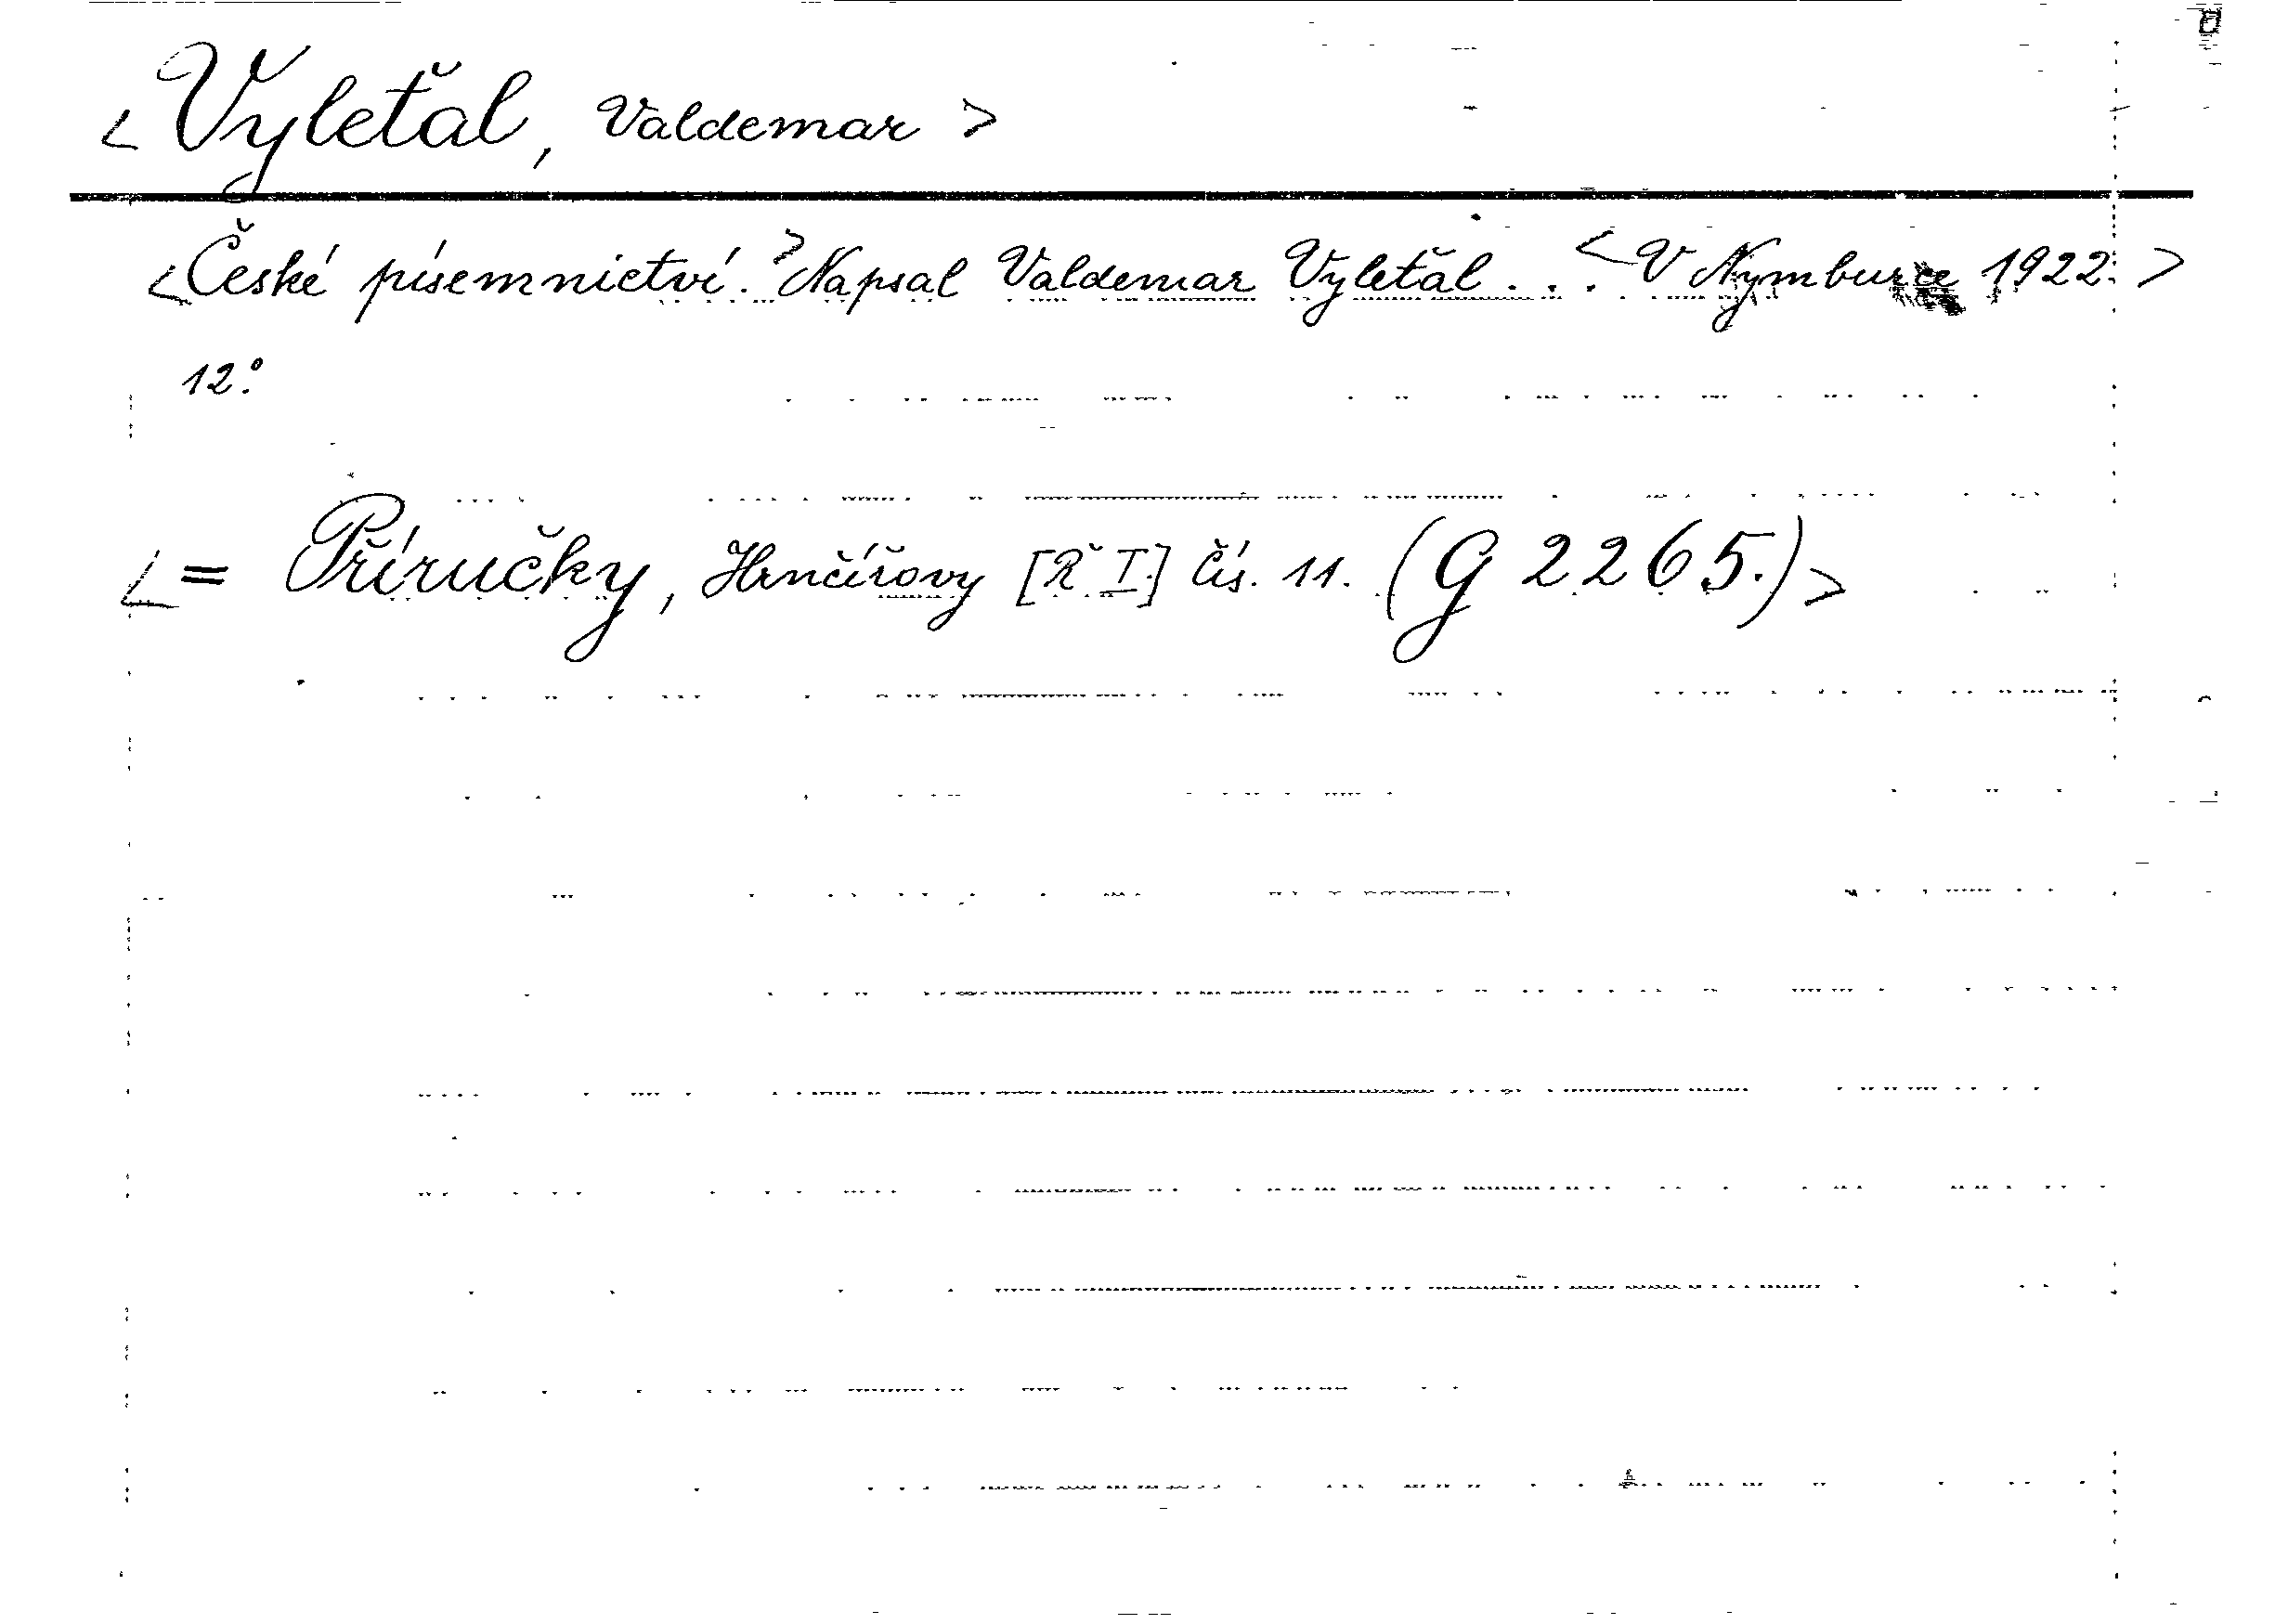 < Vyleťal, Valdemar >
< České písemnictví. > Napsal Valdemar Vyleťal . . . < V Nymburce 1922. >
12.°
< = Příručky, Hrnčířovy [Ř I.] čís. 11. (G 2265.) >